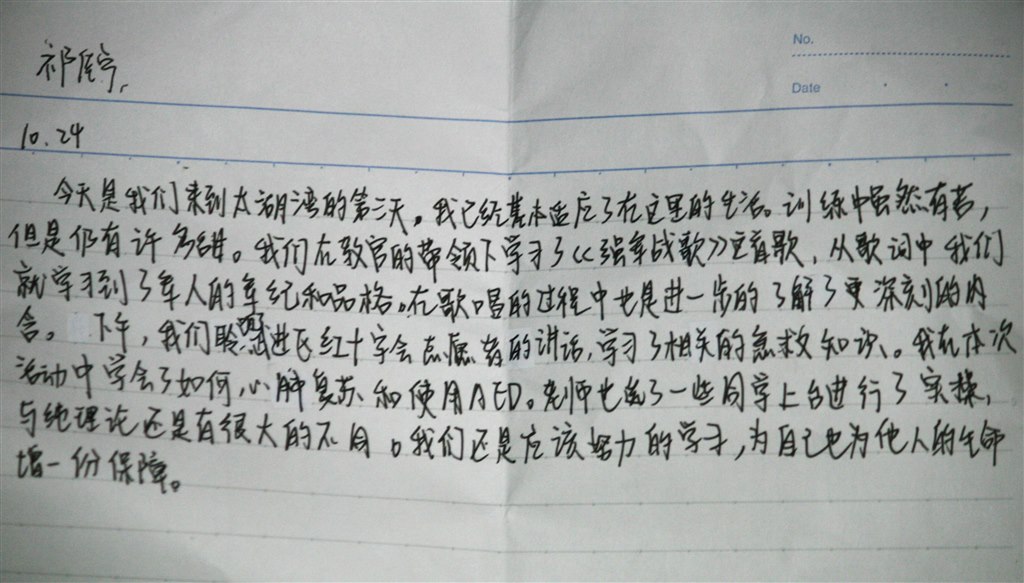 No.
祁
Date
10.24
今天是我们来到太湖湾的第三天。我已经基本适应了在这里的生活。训练中虽然有苦，
但是仍有许多甜。我们在教官的带领下学习了《强军战歌》这首歌，从歌词中我们
就学习到了军人的军纪和品格。在歌唱的过程中也是进一步的了解了更深刻的内
含。下午，我们聆听 红十字会志愿者的讲话，学习了相关的急救知识。我在本次
活动中学会了如何心肺复苏和使用AED。老师也 了一些同学上台进行了实操，
与纯理论还是有很大的不同。我们还是应该努力的学习，为自己也为他人的生命
增一份保障。